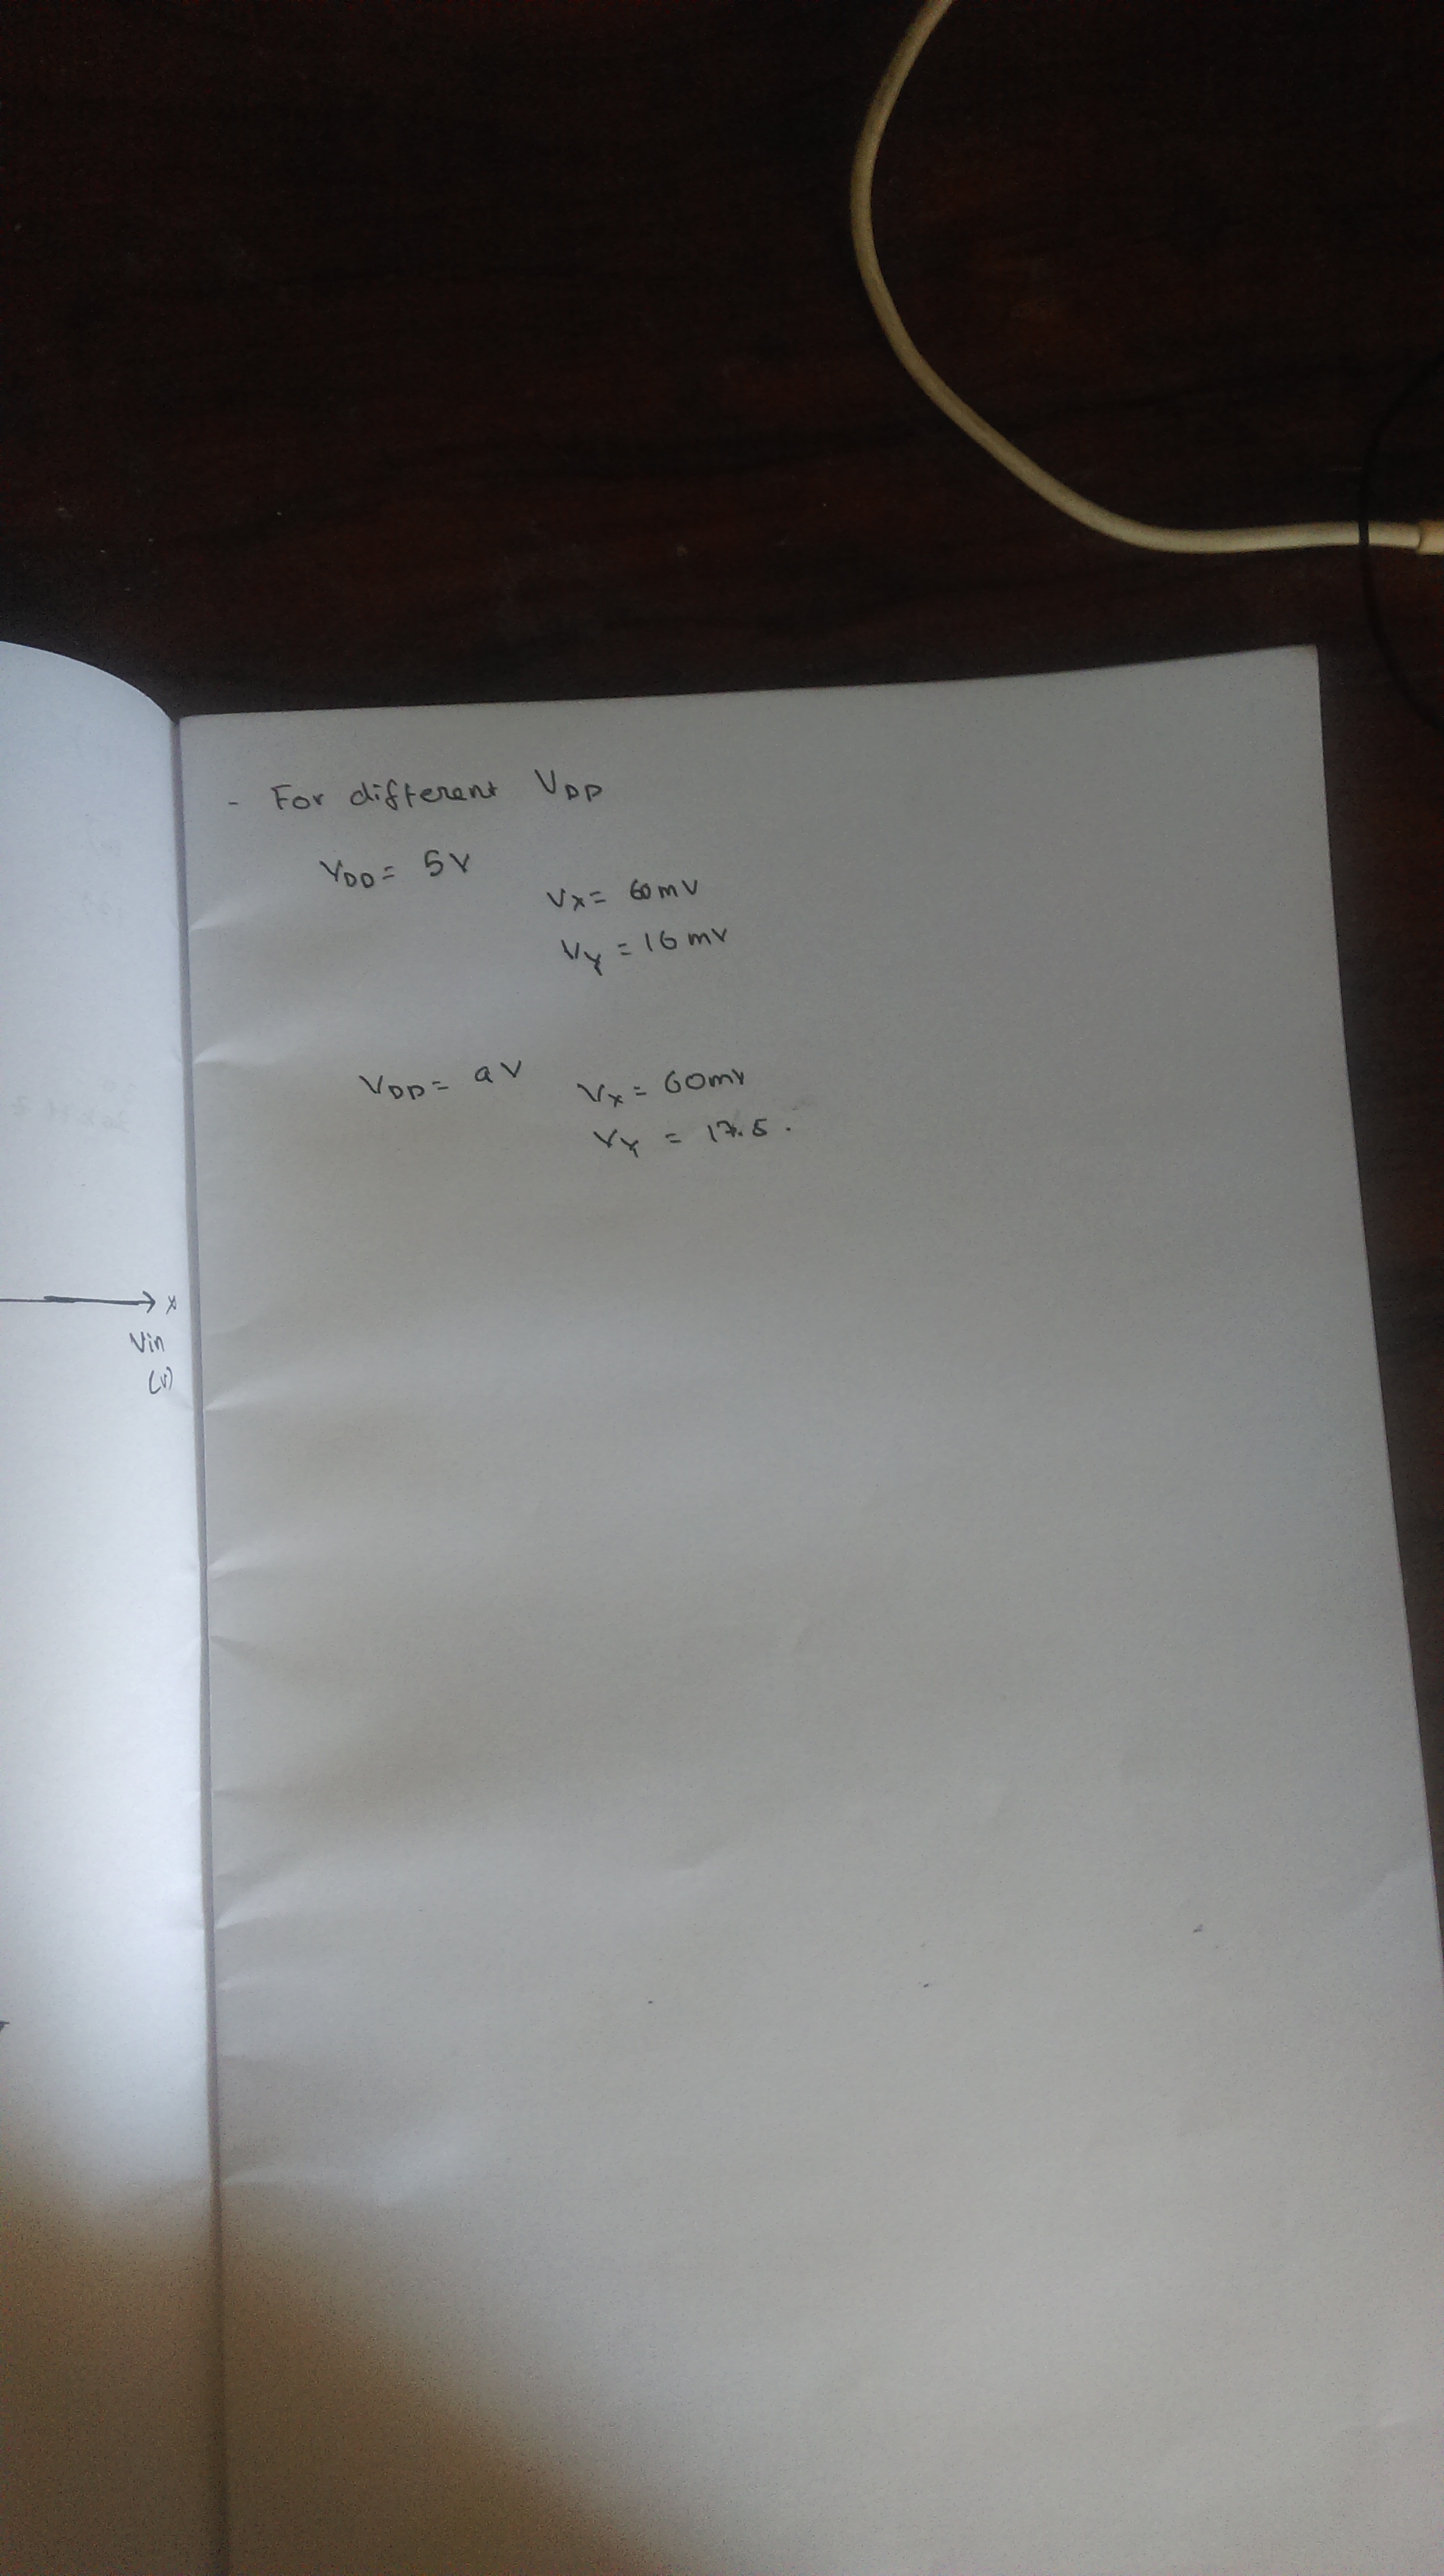 x
Vin
(V)
- For different VDD
VDD = 5V
Vx = 60mV
Vy = 16mV
VDD = 9V Vx = 60mV
Vy = 17.5.